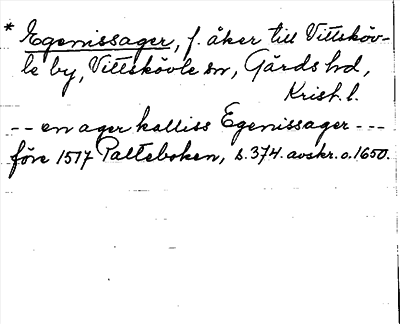 * Egenissager, f. åker till Vittsköv-
le by, Vittskövle sn, Gärds hd,
Krist. l.
-- en ager kalliss Egenissager ---
före 1517 Palteboken, s. 374. avskr. o. 1650.